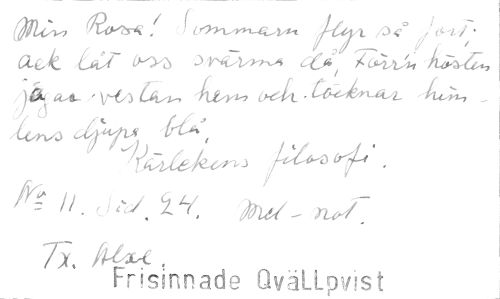 Min Rosa! Sommarn flyr så fort,
ack låt oss svärma då, Förrn hösten
jagar vestan hem och töcknar him-
lens djupa blå,
Kärlekens filosofi.
No 11. Sid. 24. Mel-not.
Tx.
Frisinnade QväLLpvist